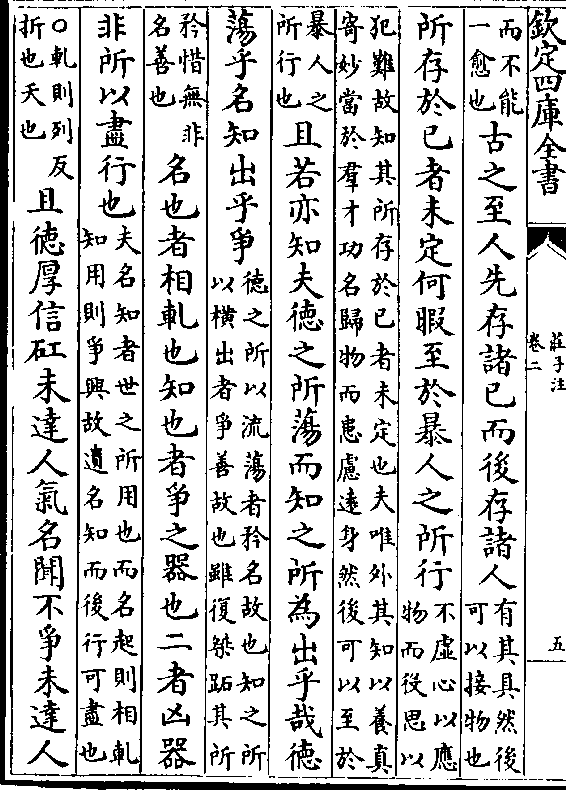 欽定四庫全書
莊子注
卷二
五
而不能
一愈也
古之至人先存諸已而後存諸人
有其具然後
可以接物也
所存於已者未定何暇至於暴人之所行
不虛心以應
物而役思以
犯難故知其所存於已者未定也夫唯外其知以養真
寄妙當於羣才功名歸物而患慮遠身然後可以至於
暴人之
所行也
且若亦知夫徳之所蕩而知之所為出乎哉徳
蕩乎名知出乎爭
徳之所以流蕩者矜名故也知之所
以橫出者爭善故也雖復桀跖其所
矜惜無非
名善也
名也者相軋也知也者爭之器也二者凶器
非所以盡行也
夫名知者世之所用也而名起則相軋
知用則爭興故遺名知而後行可盡也
○軋則列反
折也天也
且徳厚信矼未達人氣名聞不爭未達人